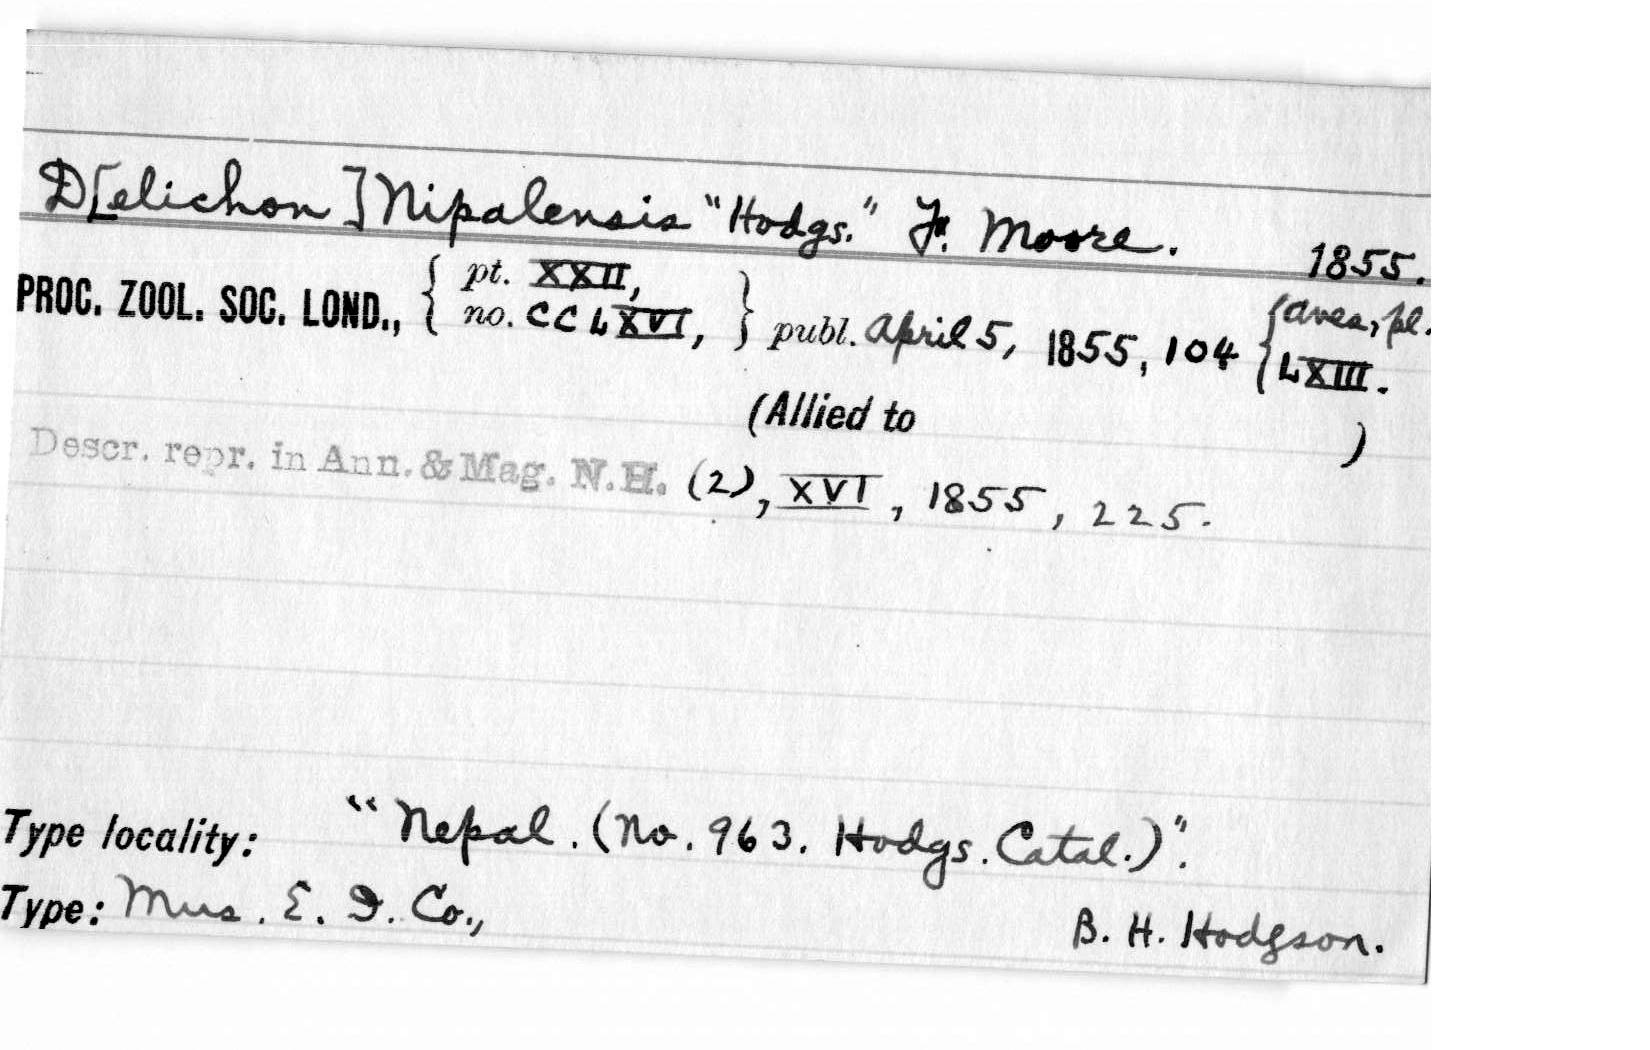 D[elichon] Nipalensis "Hodgs." F. Moore. 1855.
PROC. ZOOL. SOC. LOND., { pt. XXII, no. CCLXVI, } publ. April 5, 1855, 104 { Aves, pl. LXIII.
(Allied to )
Descr. repr. in Ann. & Mag. N.H. (2), XVI, 1855, 225.
Type locality: "Nepal. (No. 963. Hodgs. Catal.)".
Type: Mus. E. I. Co., B. H. Hodgson.